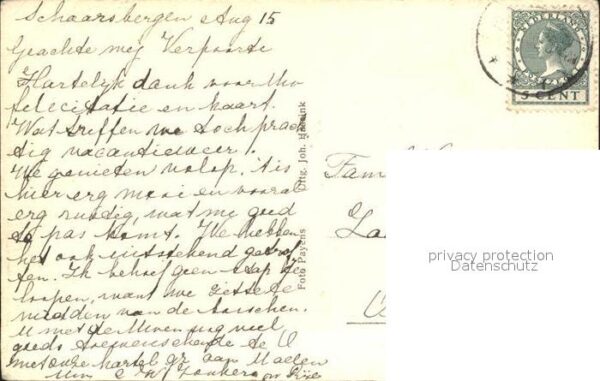 Schaarsbergen Aug 15
Geachte mej Verpoorte
Hartelijk dank voor Uw
felicitatie en kaart.
Wat treffen we toch prach
tig vacantieweer!
We genieten volop. 't is
hier erg mooi en vooral
erg rustig, wat mij goed
te pas komt. We hebben
het ook uitstekend getrof
fen. Ik behoef geen stap te
loopen, want we zitten te
midden van de bosschen.
U met de Uwen nog veel
goeds toewenschende
met onze hartel gr aan
NEDERLAND
5 CENT
Fam
Foto Payens
Uitg. Joh.
privacy protection
Datenschutz